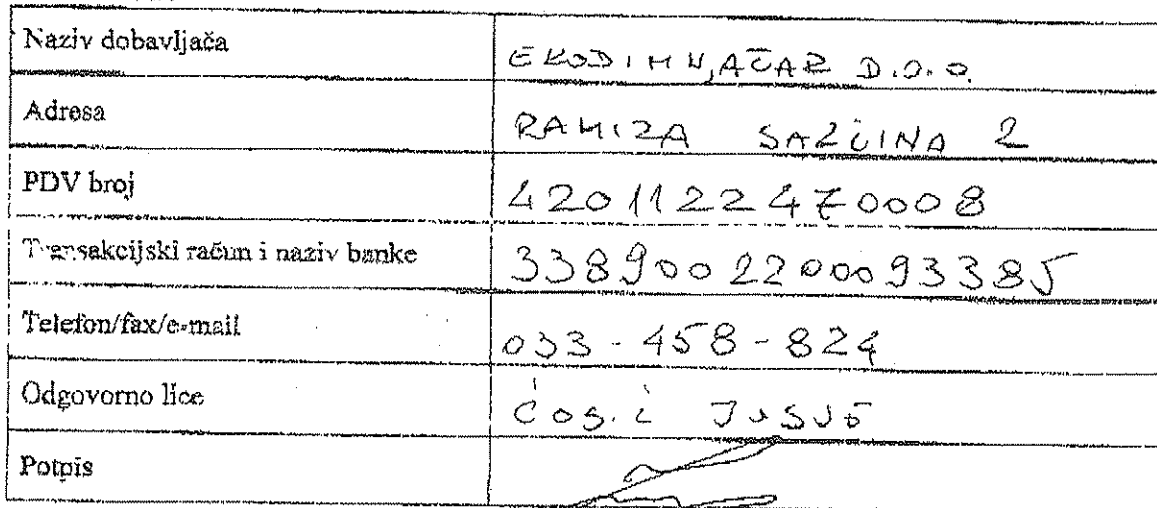 Naziv dobavljača
EKODIMNJAČAR D.O.O.
Adresa
RAMIZA SALČINA 2
PDV broj
4201122470008
Transakcijski račun i naziv banke
3389002200093385
Telefon/fax/e-mail
033-458-824
Odgovorno lice
Jusuf
Potpis